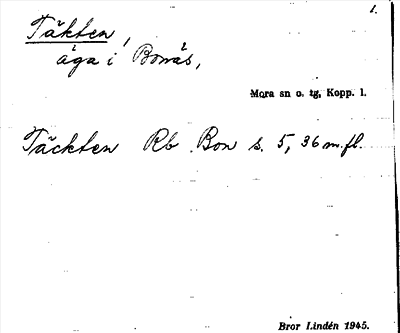 1.
Täkten,
äga i Bonäs,
Mora sn o. tg, Kopp. l.
Täckten Rb Bon s. 5, 36 m.fl.
Bror Lindén 1945.